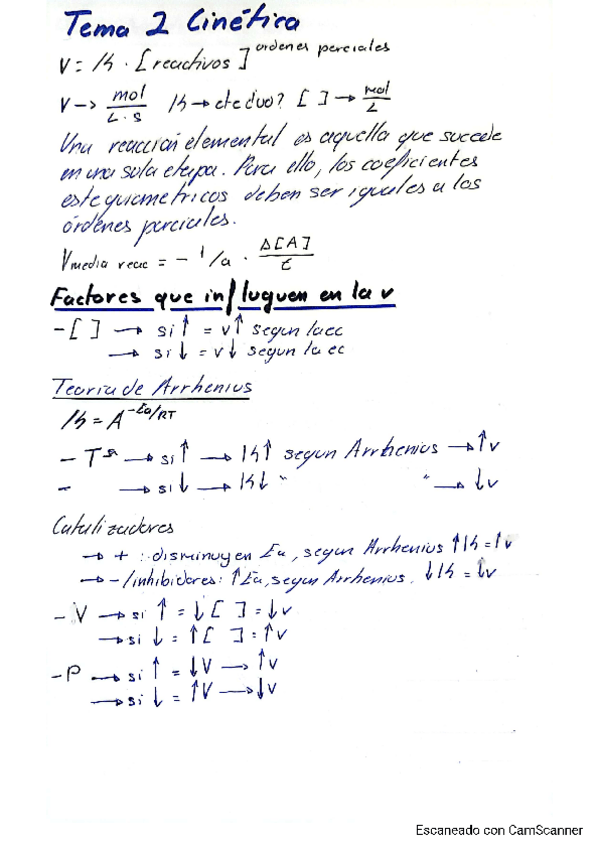 Tema 2 Cinética
V = K · [reactivos] ordenes parciales
V -> mol/L·s K → [ ] → mol/L
Una reacción elemental es aquella que sucede
en una sola etapa. Para ello, los coeficientes
estequiometricos deben ser iguales a los
órdenes parciales.
Vmedia reac = - 1/a · Δ[A]/t
Factores que influyen en la v
- [ ] → si ↑ = v↑ segun la ec
→ si ↓ = v↓ segun la ec
Teoria de Arrhenius
K = A^-Ea/RT
- Tª → si ↑ → K↑ segun Arrhenius → ↑v
- → si ↓ → K↓ " " → ↓v
Catalizadores
→ + : disminuyen Ea, segun Arrhenius ↑K = ↑v
→ -/inhibidores: ↑Ea, segun Arrhenius. ↓K = ↓v
- V → si ↑ = ↓[ ] = ↓v
→ si ↓ = ↑[ ] = ↑v
- P → si ↑ = ↓V → ↑v
→ si ↓ = ↑V → ↓v
Escaneado con CamScanner